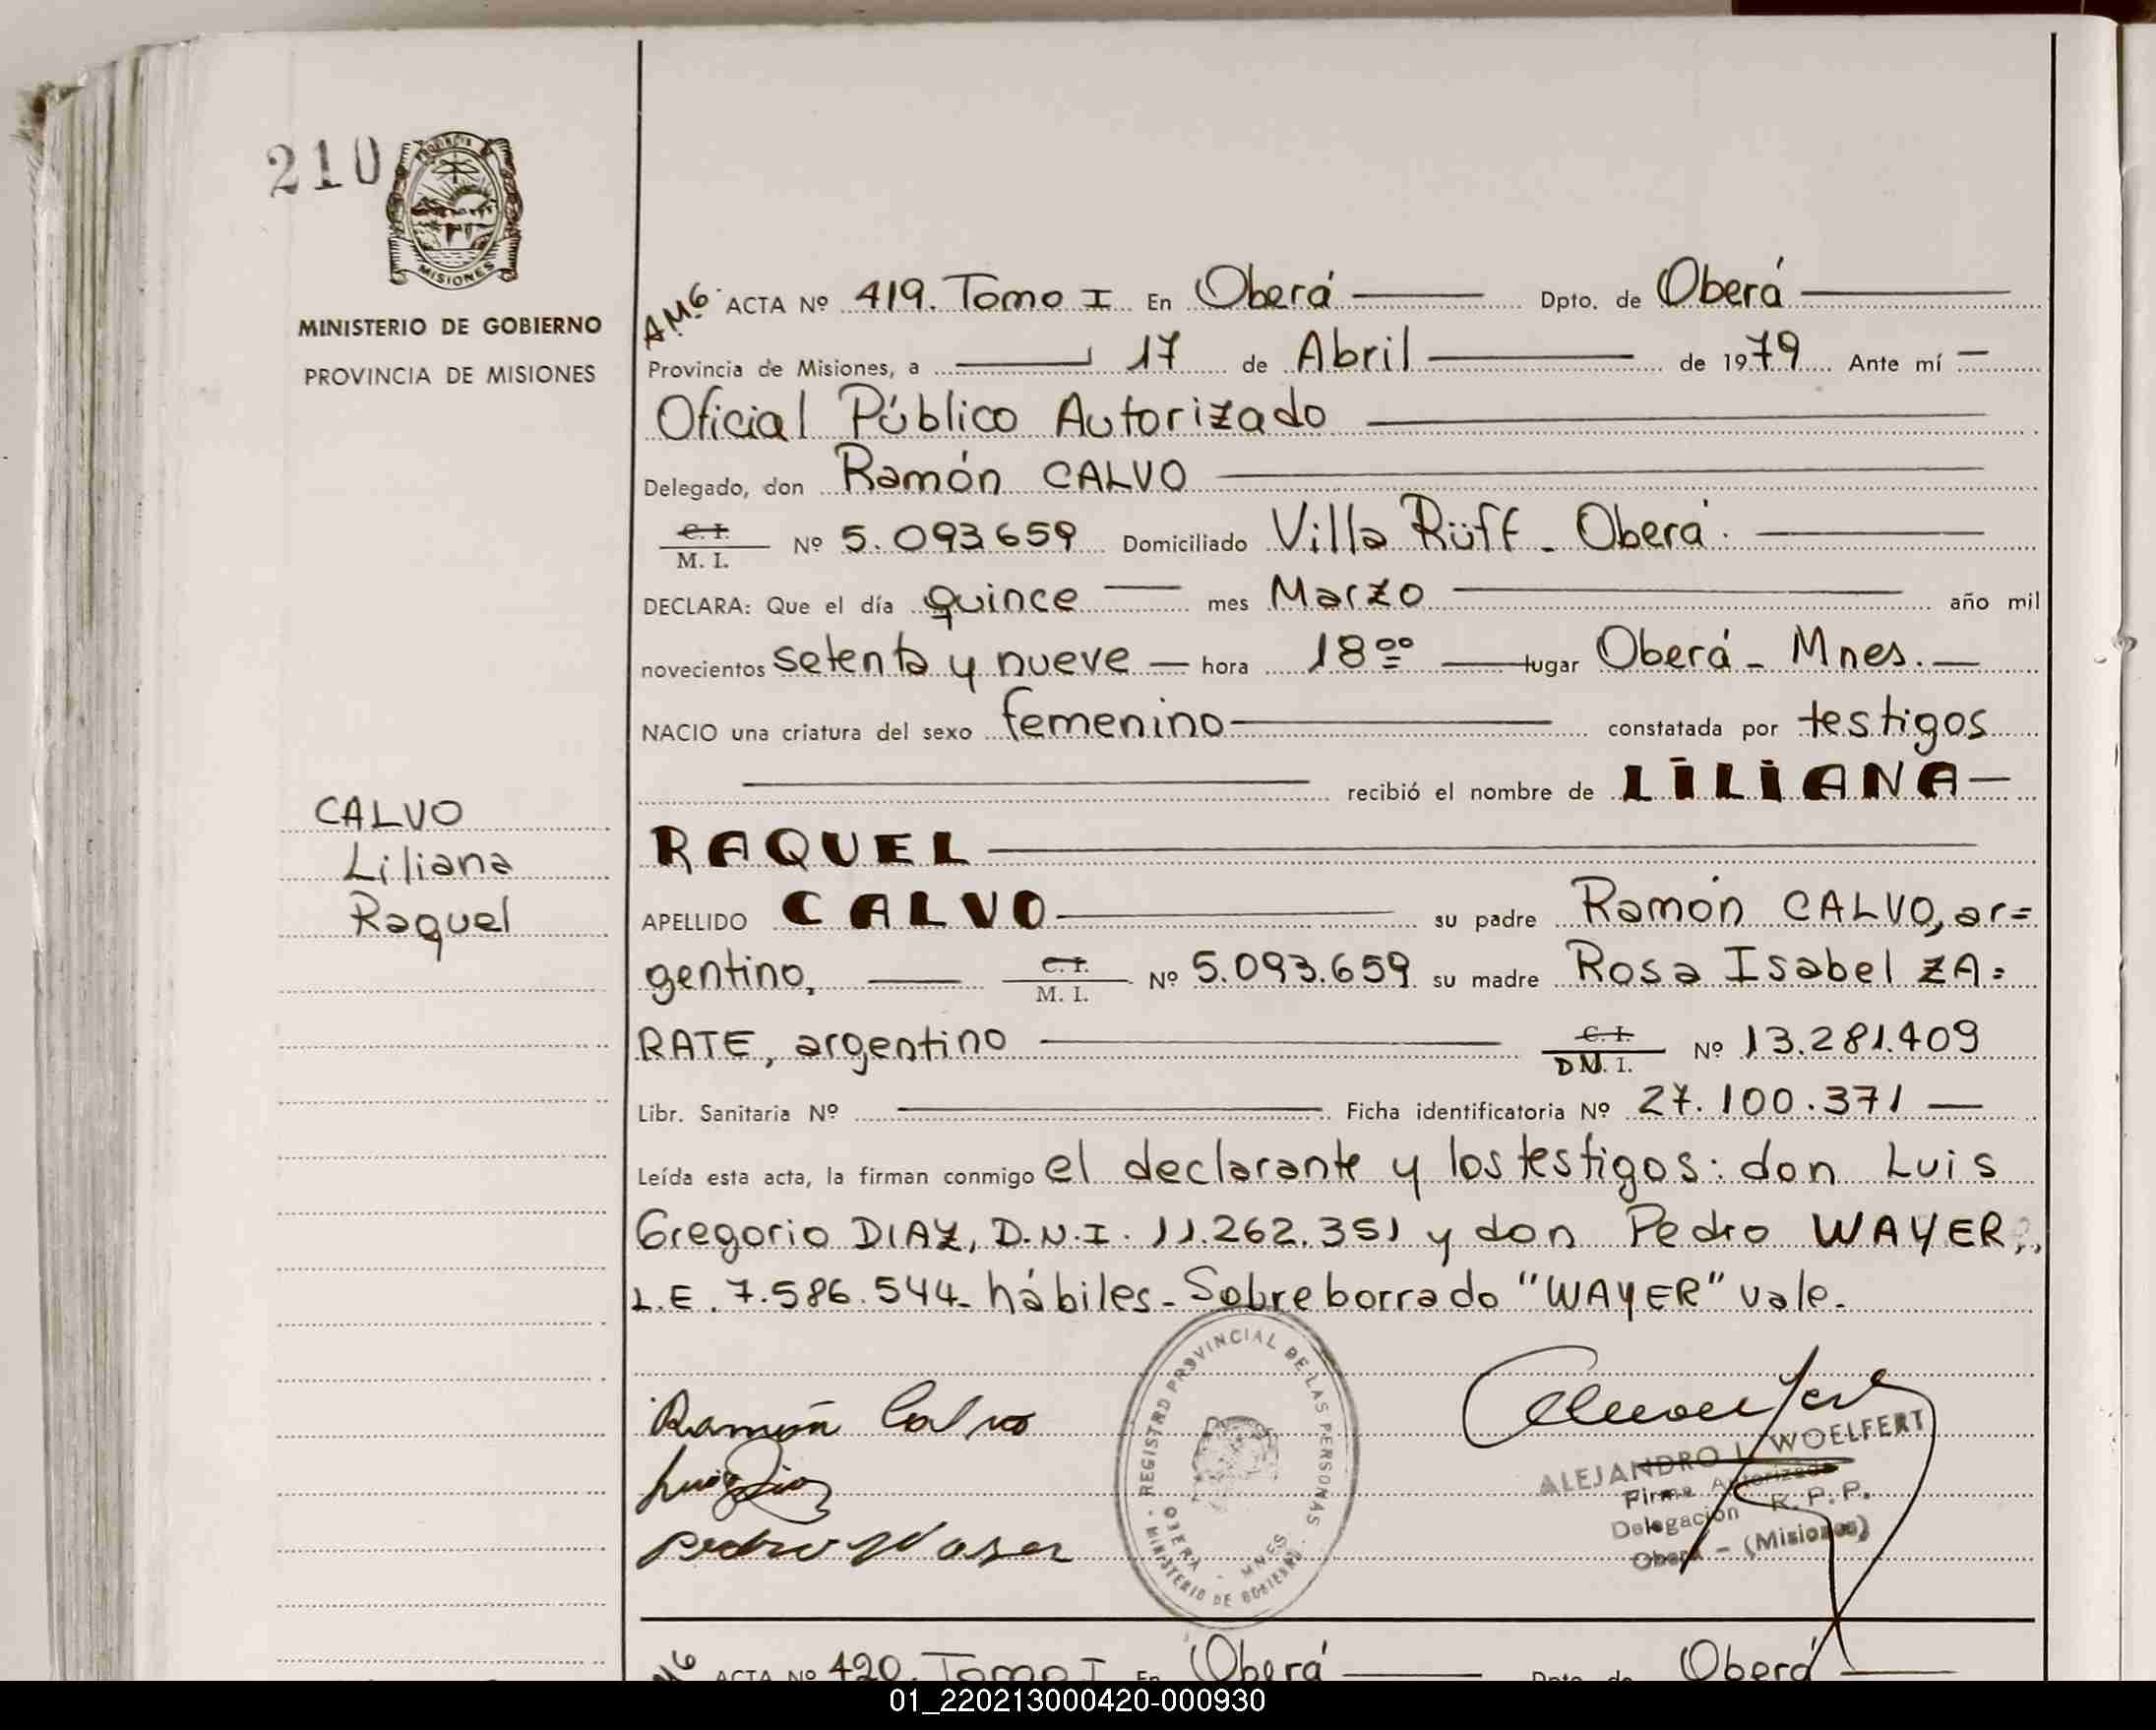 210
PROVINCIA
MISIONES
MINISTERIO DE GOBIERNO
PROVINCIA DE MISIONES
CALVO
Liliana
Raquel
A.M.G. ACTA Nº 419. Tomo I En Oberá Dpto. de Oberá
Provincia de Misiones, a 17 de Abril de 1979 Ante mí
Oficial Público Autorizado
Delegado, don Ramón CALVO
C. I.
M. I. Nº 5.093.659 Domiciliado Villa Rüff - Oberá.
DECLARA: Que el día quince mes Marzo año mil
novecientos setenta y nueve hora 18⁰⁰ lugar Oberá - Mnes.
NACIO una criatura del sexo femenino constatada por testigos
recibió el nombre de LILIANA
RAQUEL
APELLIDO CALVO su padre Ramón CALVO, ar=
gentino, C. I.
M. I. Nº 5.093.659 su madre Rosa Isabel ZA=
RATE, argentino C. I.
DN. I. Nº 13.281.409
Libr. Sanitaria Nº Ficha identificatoria Nº 27.100.371
Leída esta acta, la firman conmigo el declarante y los testigos: don Luis
Gregorio DIAZ, D.N.I. 11.262.351 y don Pedro WAYER,
L.E. 7.586.544- hábiles- Sobreborrado "WAYER" vale.
Ramón Calvo
Luis Diaz
Pedro Wayer
REGISTRO PROVINCIAL DE LAS PERSONAS
OBERA - MNES
MINISTERIO DE GOBIERNO
ALEJANDRO L. WOELFERT
Firma Autorizada
Delegación R. P. P.
Oberá - (Misiones)
ACTA Nº 420. Tomo I En Oberá Dpto. de Oberá
01_220213000420-000930